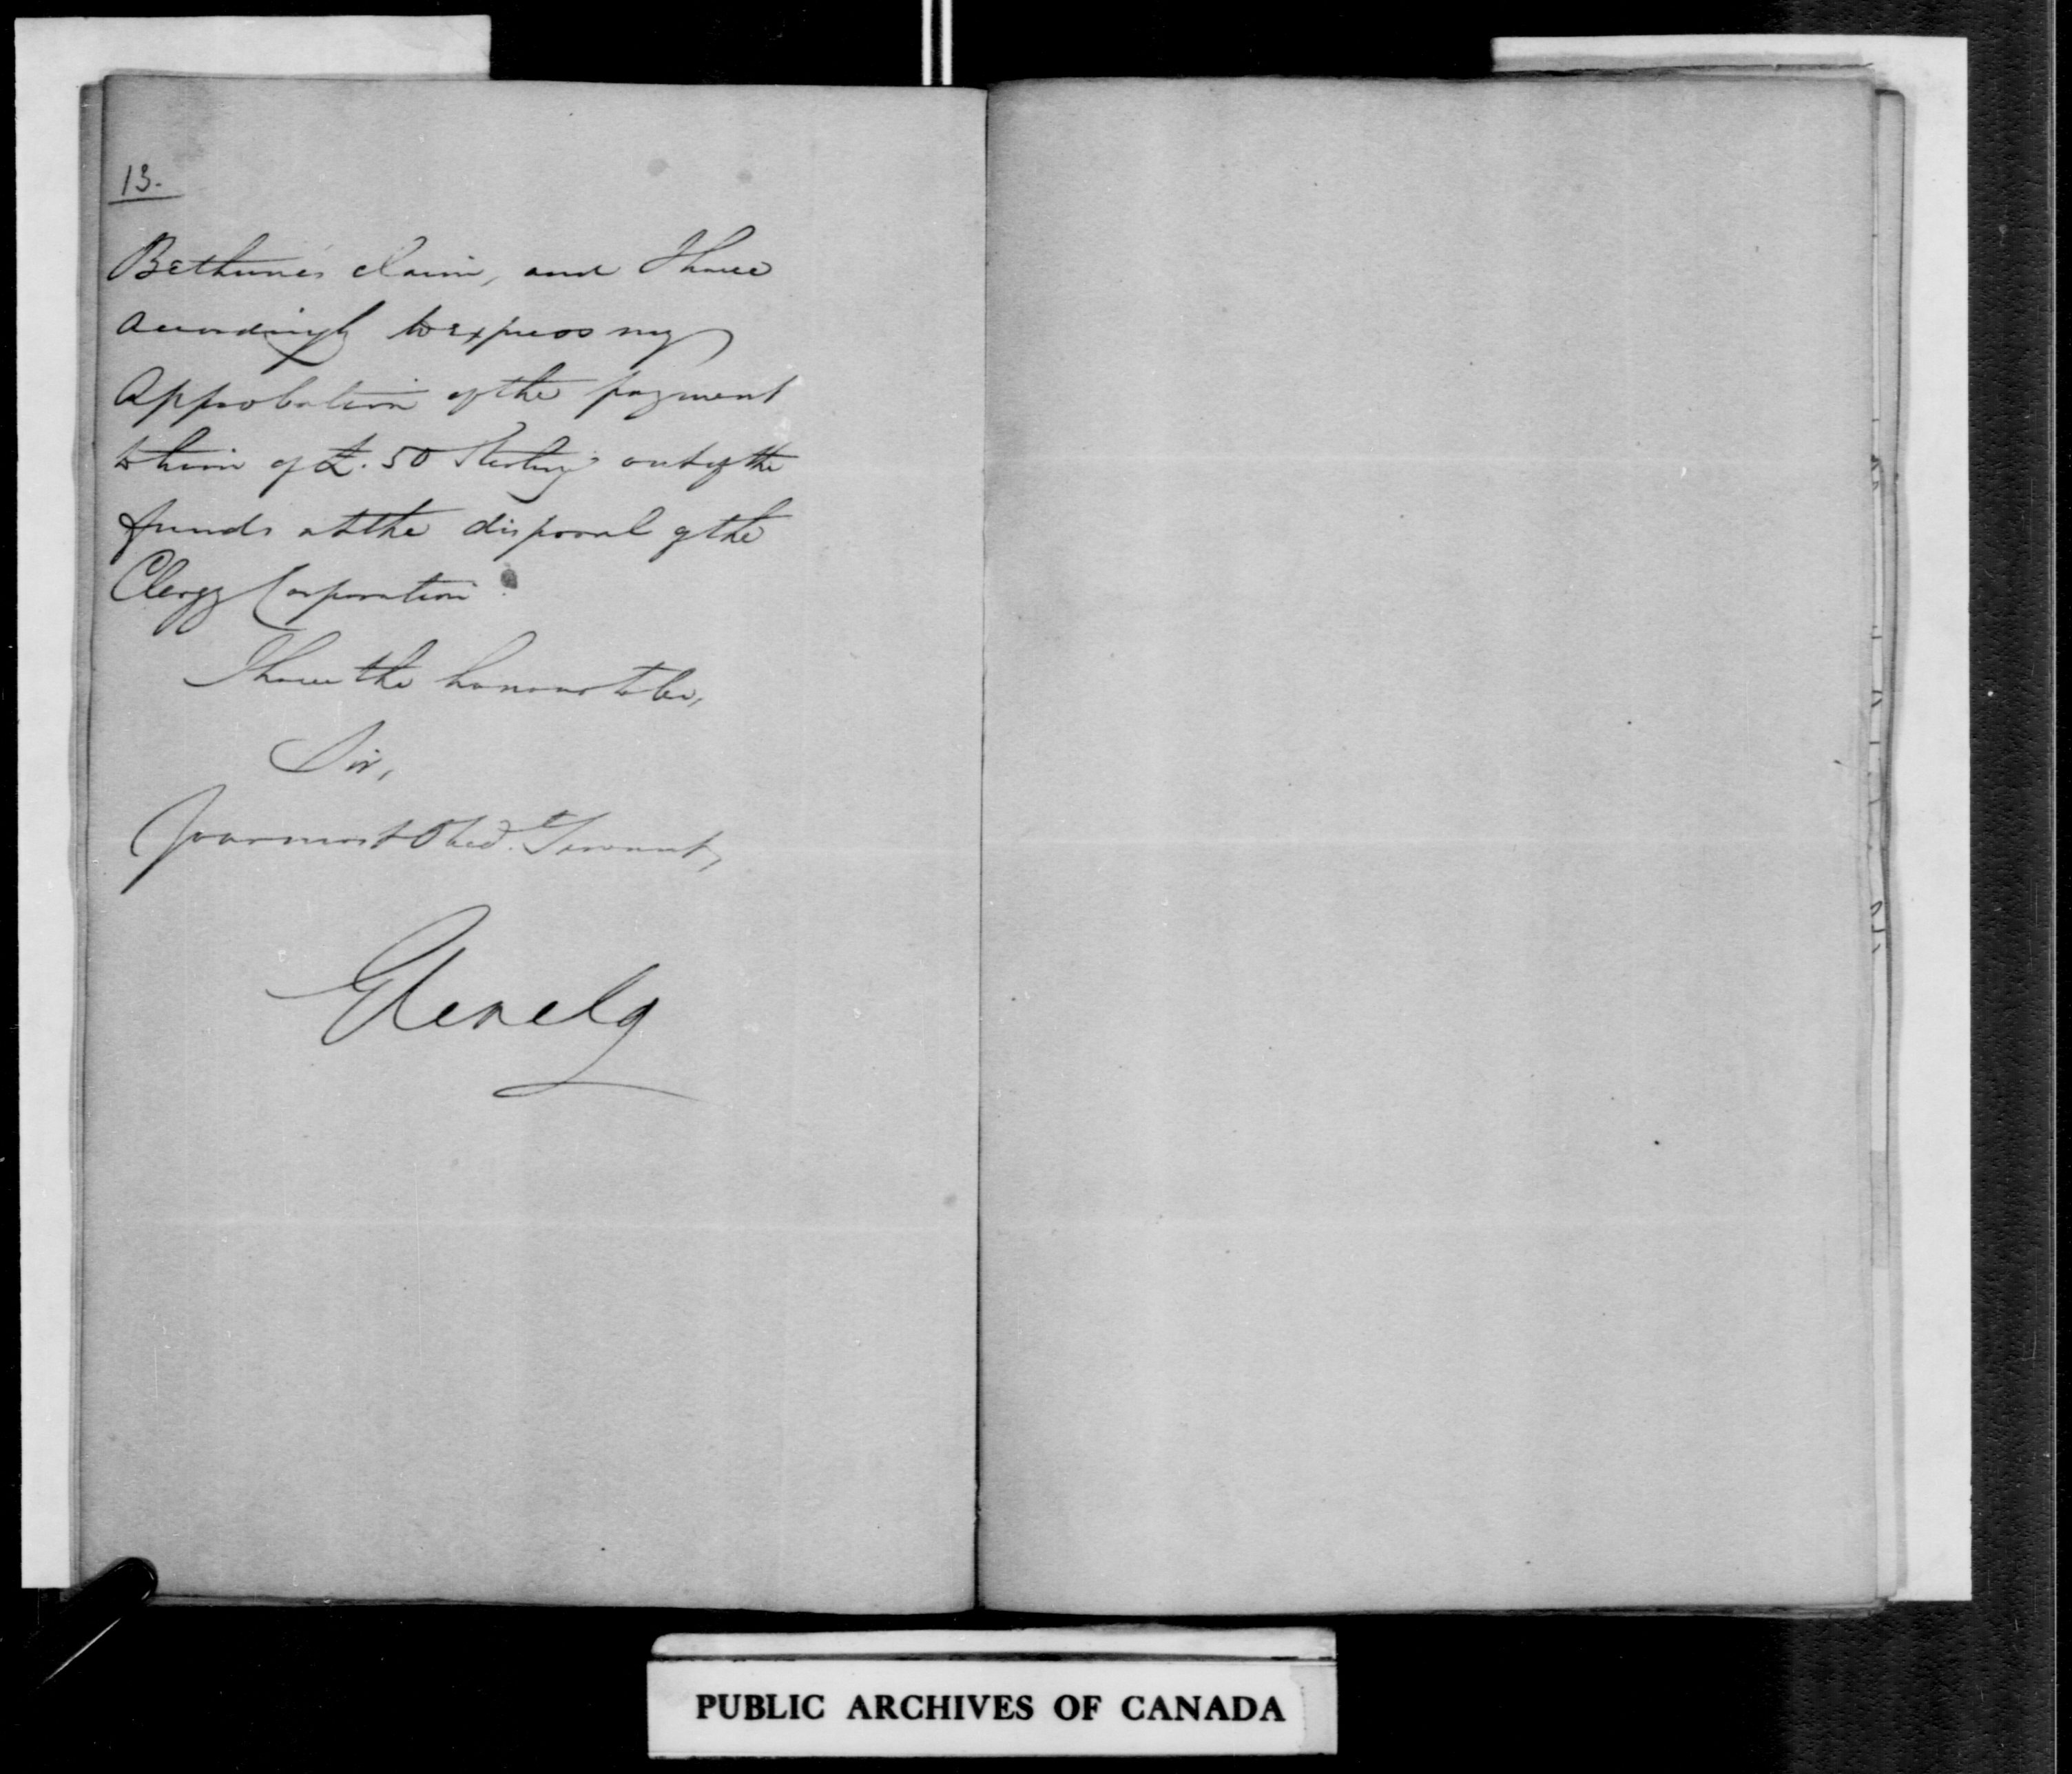 13.
Bethune's claim, and I have
accordingly to express my
approbation of the payment
to him of £.50 Sterling out of the
funds at the disposal of the
Clergy Corporation.
I have the honour to be,
Sir,
Your most Obed.t Servant,
Glenelg
PUBLIC ARCHIVES OF CANADA